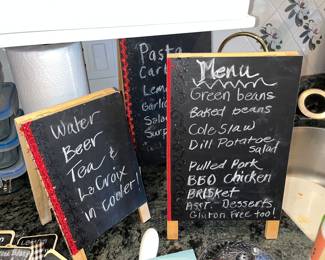 Water
Beer
Tea &
LaCroix
in cooler!
Pasta
Menu
Green beans
Baked beans
Cole Slaw
Dill Potatoe
Salad
Pulled Pork
BBQ Chicken
BRISKET
Asst. Desserts
Gluton Free too!